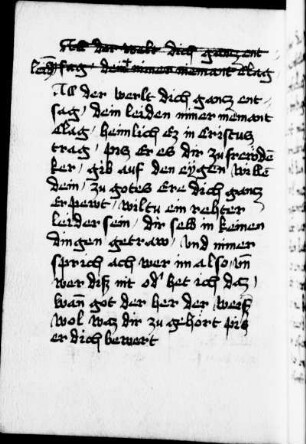 All der welt dich gantz ent
sag / dein leiden nimer niemant clag
All der werlt dich gantz ent
sag / dein leiden nimer niemant
clag / heimlich Ez in Cristus
trag / piß Er es dir zu frewdē
ker / gib auf den eygen wille
dein / zu gotes Ere dich gantz
Erpewt / wiltu ein rehter
leider sein / dir selb in keinen
dingen getraw / und nimer
sprich ach wer im also / vn̄
wer diß nit od' het ich daz /
wan̄ got der her der weiß
wol waz dir zu gehort piß
er dich bewert